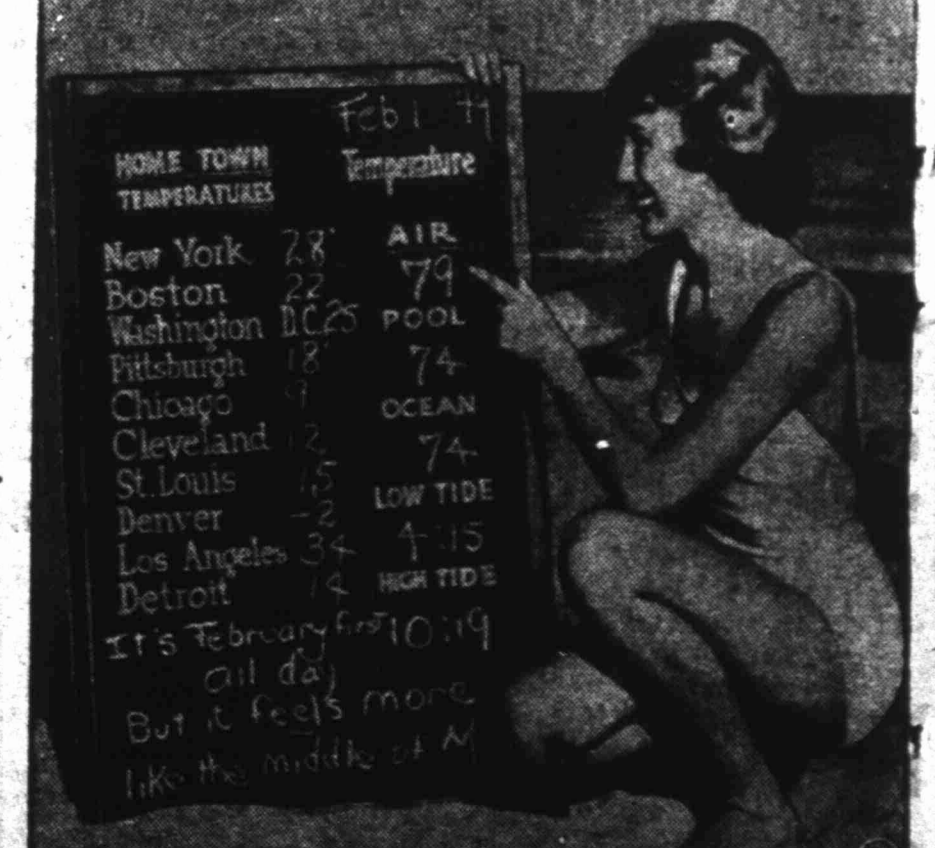 Feb 1 '44
HOME TOWN
TEMPERATURES
New York 28
Boston 22
Washington D.C. 25
Pittsburgh 18
Chicago 9
Cleveland 12
St. Louis 15
Denver -2
Los Angeles 34
Detroit 14
Temperature
AIR
79
POOL
74
OCEAN
74
LOW TIDE
4:15
HIGH TIDE
10:19
It's February first
all day
But it feels more
like the middle of M